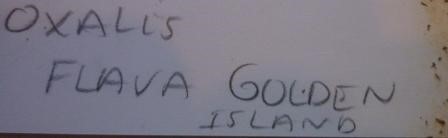 OXALIS
FLAVA GOLDEN
ISLAND